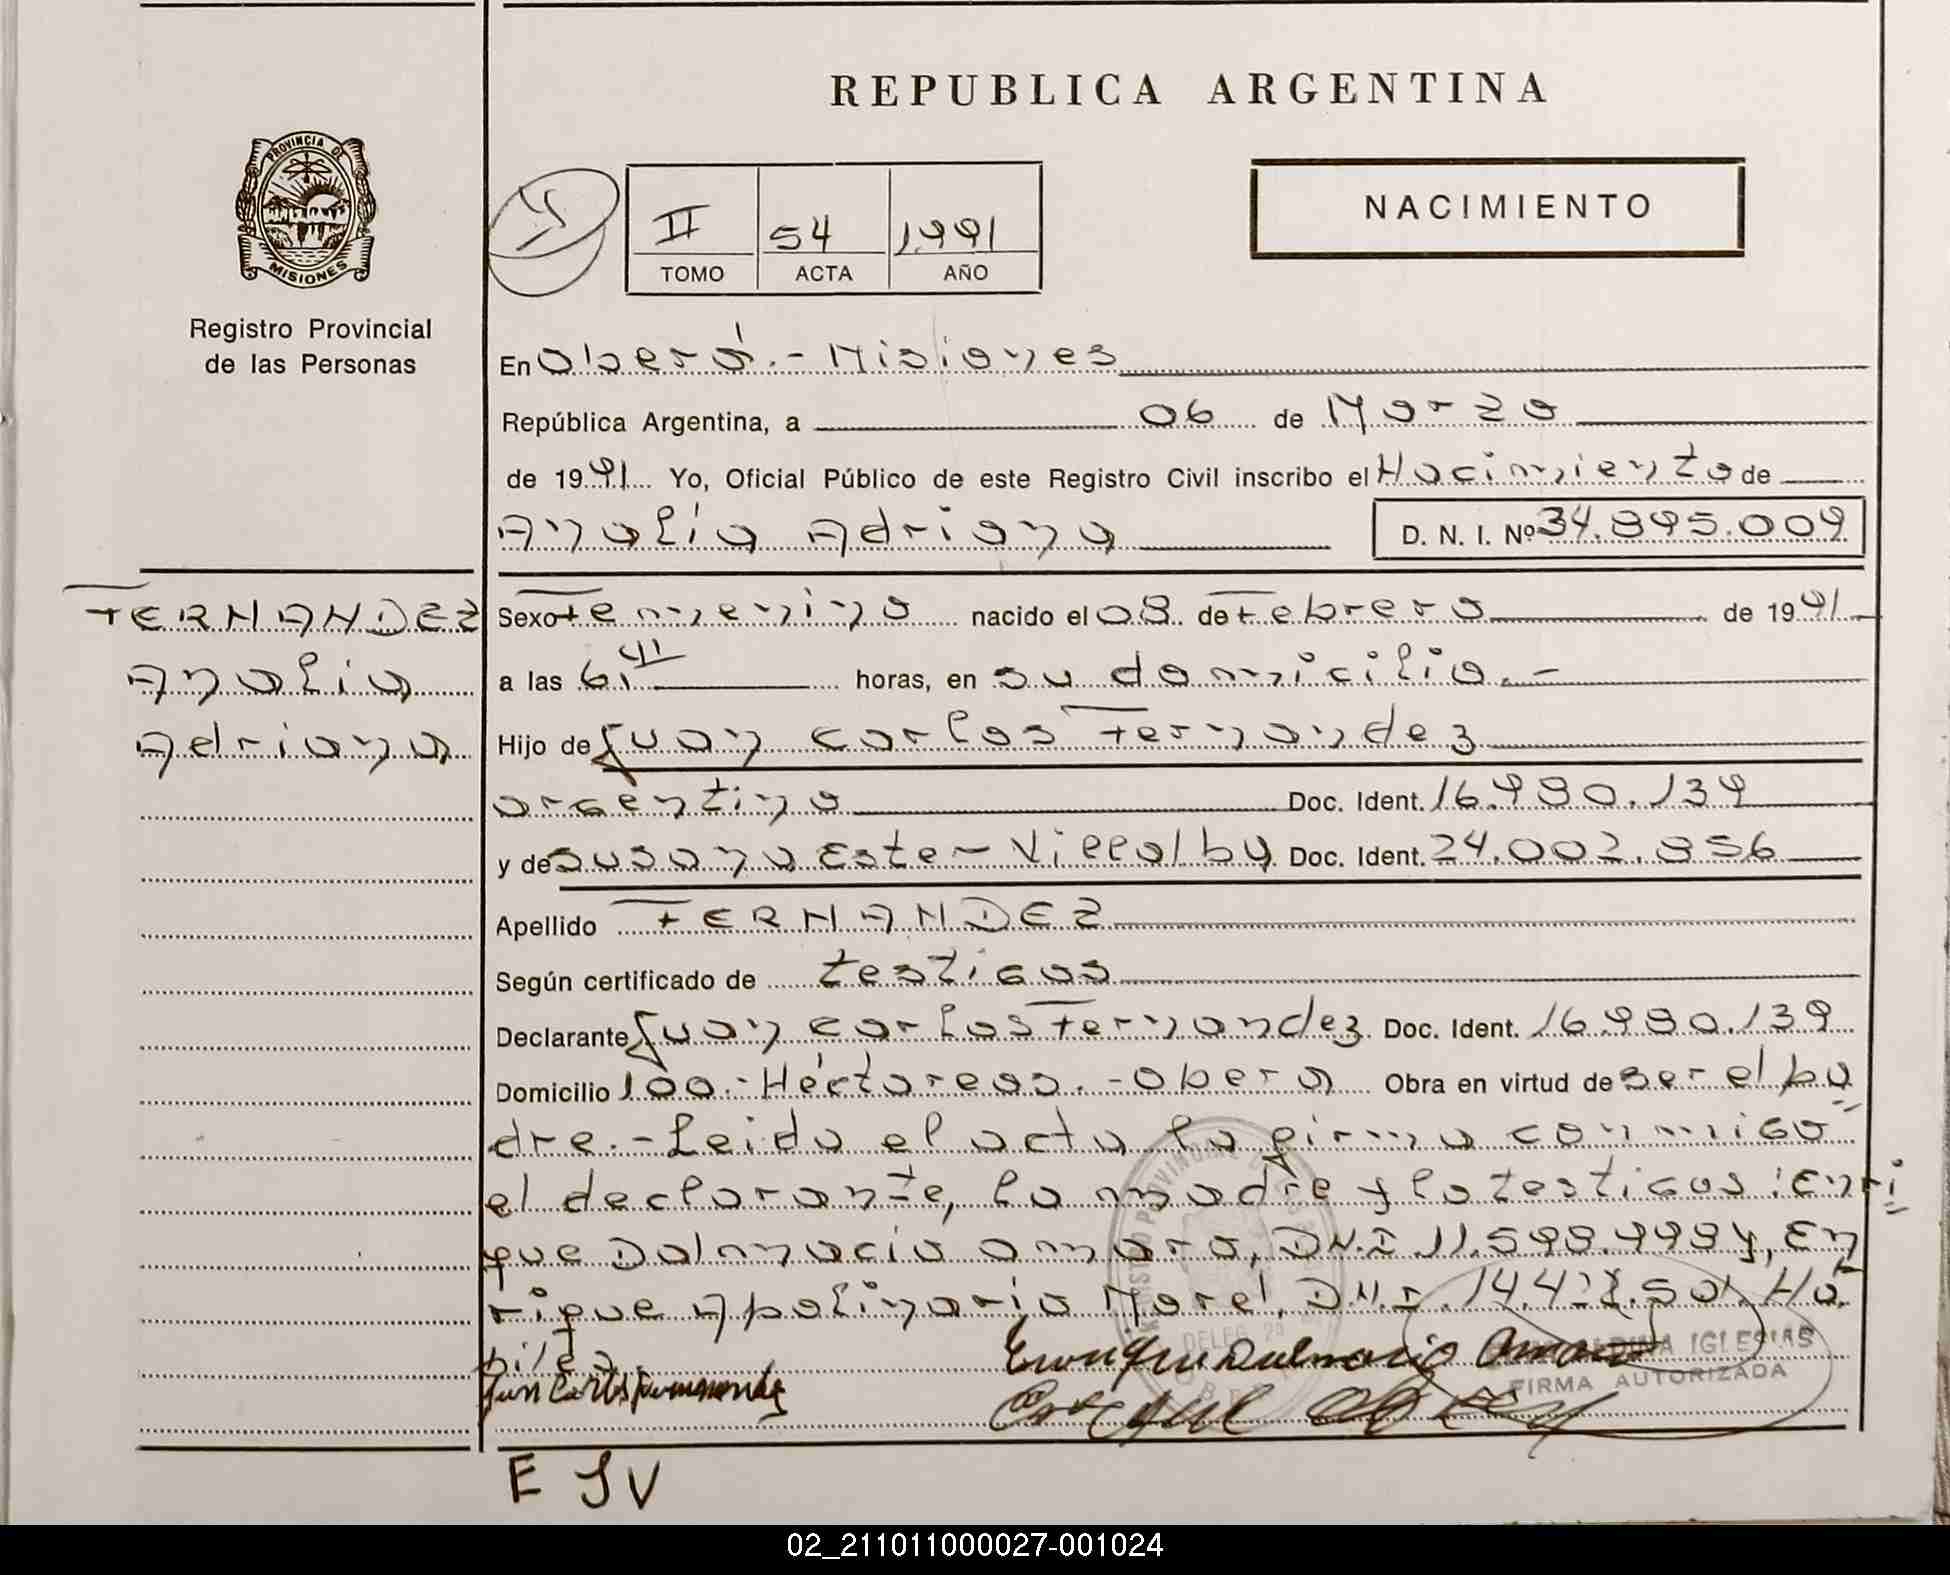 REPUBLICA ARGENTINA
PROVINCIA DE
MISIONES
Registro Provincial
de las Personas
II 54 1991
TOMO ACTA AÑO
NACIMIENTO
En Oberá.- Misiones
República Argentina, a 06 de Marzo
de 1991 Yo, Oficial Público de este Registro Civil inscribo el Nacimiento de
Analía Adriana D. N. I. Nº 34.895.009
FERNANDEZ
Analia
Adriana
Sexo Femenino nacido el 08 de Febrero de 1991
a las 6, horas, en su domicilio.-
Hijo de Juan carlos Fernandez
argentino Doc. Ident. 16.980.139
y de Susana Ester Villalba Doc. Ident. 24.002.856
Apellido FERNANDEZ
Según certificado de testigos
Declarante Juan carlos Fernandez Doc. Ident. 16.980.139
Domicilio 100.- Héctareas.- Obera Obra en virtud de ser el pa
dre.- Leida el acta la firma conmigo
el declarante, la madre y lo testigos: Enri
que Dalmacio amaro, D.N.I 11.598.998 y, En
rique Apolinario Morel, D.N.I. 14.428.501 Há
biles
Juan Carlos Fernandez
Enrique Dalmacio
IGLESIAS
FIRMA AUTORIZADA
E S V
02_211011000027-001024